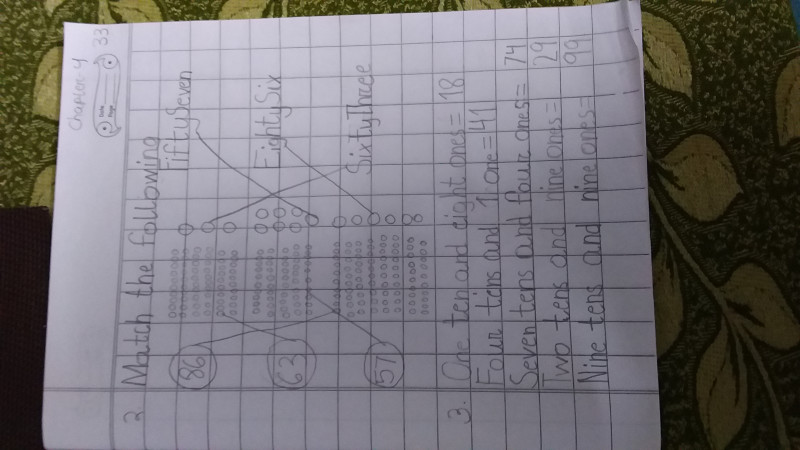 Chapter-4
Date
Page
33
2. Match the following
86 Fifty Seven
63 Eighty Six
57 Sixty Three
3. One ten and eight ones= 18
Four tens and 1 one=41
Seven tens and four ones= 74
Two tens and nine ones= 29
Nine tens and nine ones= 99